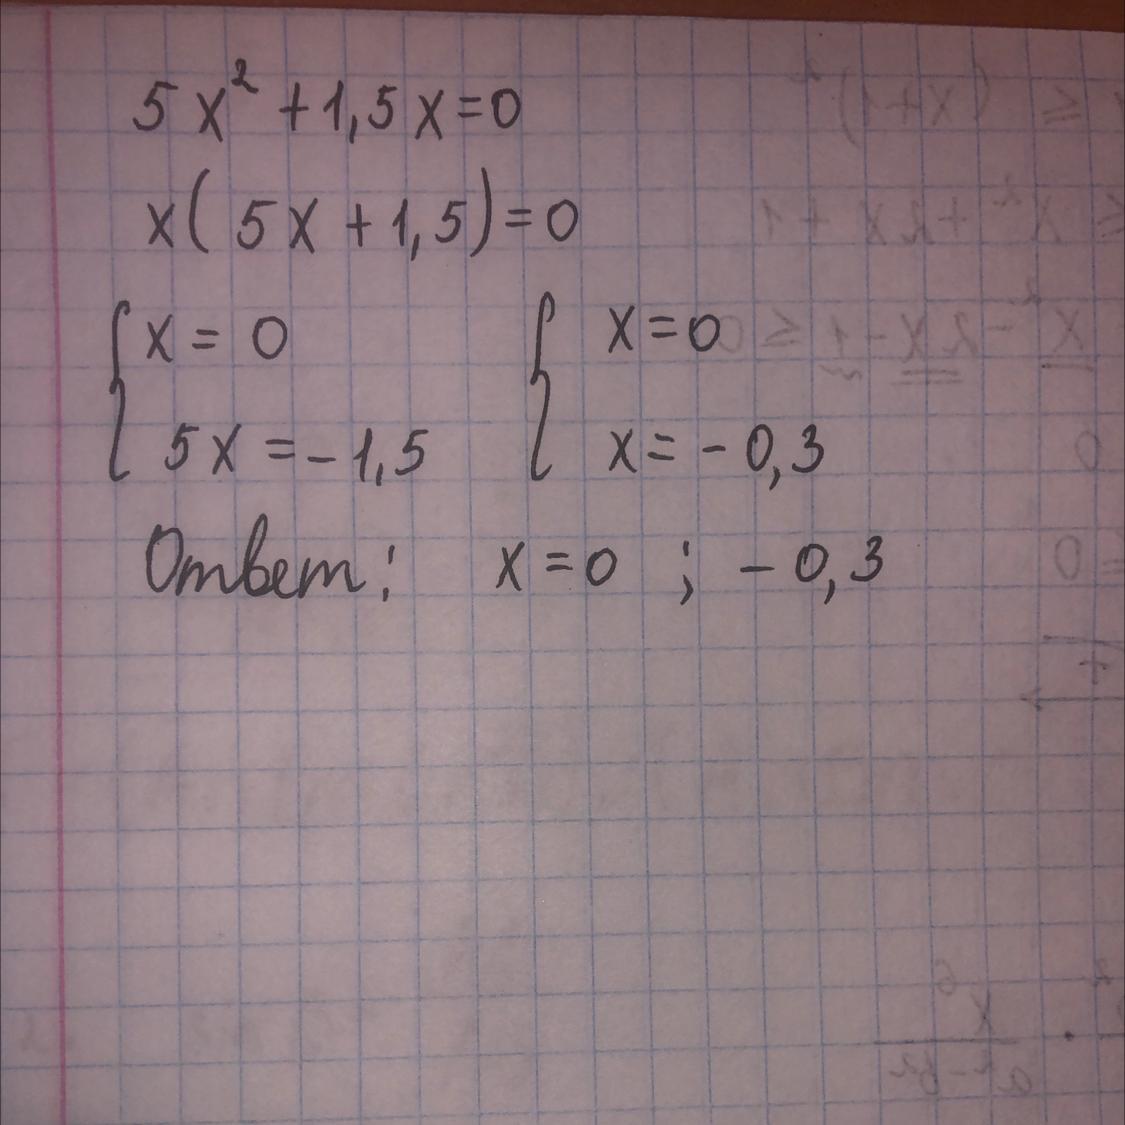 5x² + 1,5x = 0
x(5x + 1,5) = 0
{ x = 0 { x = 0
5x = -1,5 x = -0,3
Ответ: x = 0 ; -0,3